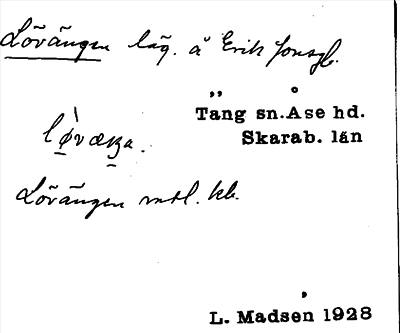 Lövängen läg. å Erik Jonsgb.
Täng sn. Åse hd.
Skarab. län
lø̀væŋa.
Lövängen mtl. kb.
L. Madsen 1928